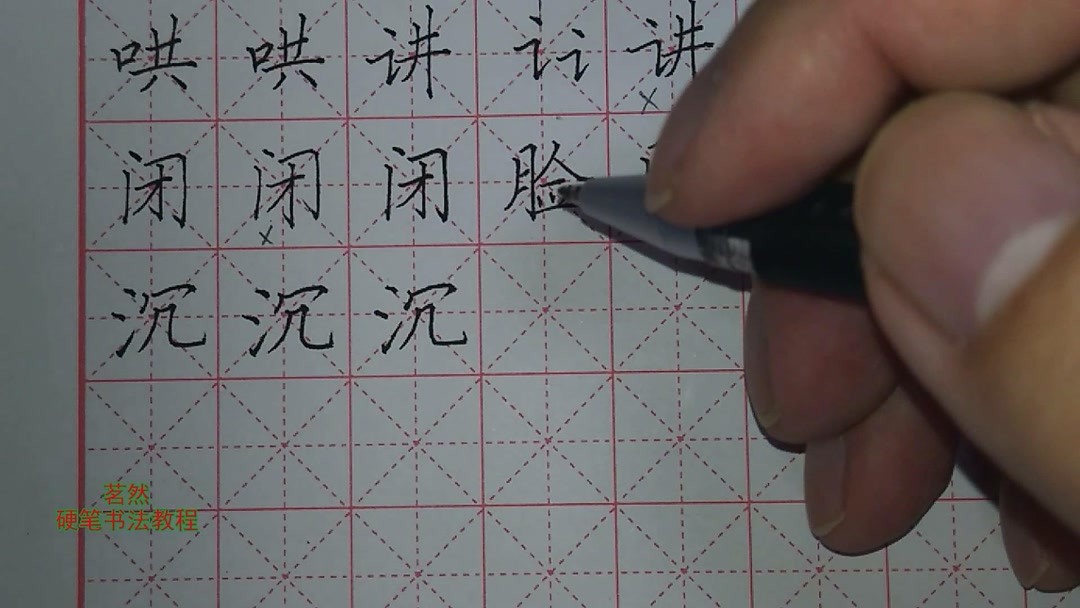 哄 哄 讲 讠讠 讲
×
闭 闭 闭 脸
×
沉 沉 沉
茗然
硬笔书法教程